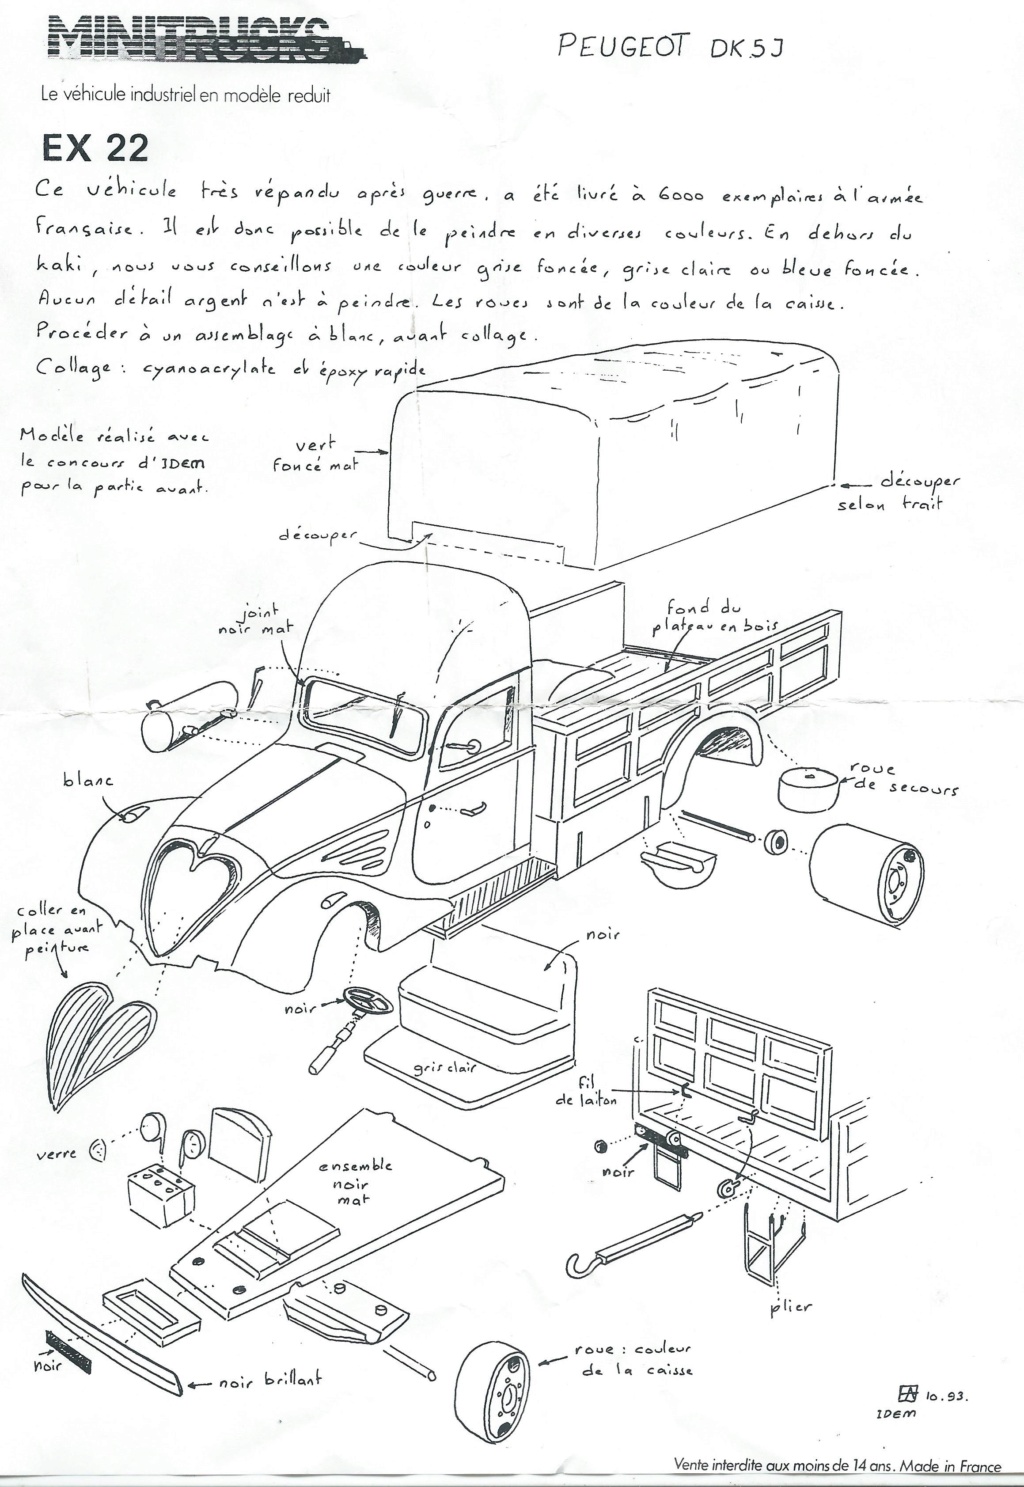 MINITRUCKS
PEUGEOT DK5J
Le véhicule industriel en modèle reduit
EX 22
Ce véhicule très répandu après guerre, a été livré à 6000 exemplaires à l'armée
française. Il est donc possible de le peindre en diverses couleurs. En dehors du
kaki, nous vous conseillons une couleur grise foncée, grise claire ou bleue foncée.
Aucun détail argent n'est à peindre. Les roues sont de la couleur de la caisse.
Procéder à un assemblage à blanc, avant collage.
Collage : cyanoacrylate et époxy rapide
Modèle réalisé avec
le concours d'IDEM
pour la partie avant.
vert
foncé mat
découper
selon trait
découper
joint
noir mat
fond du
plateau en bois
blanc
roue
de secours
coller en
place avant
peinture
noir
noir
gris clair
fil
de laiton
verre
ensemble
noir
mat
noir
plier
noir
noir brillant
roue : couleur
de la caisse
10.93.
IDEM
Vente interdite aux moins de 14 ans. Made in France